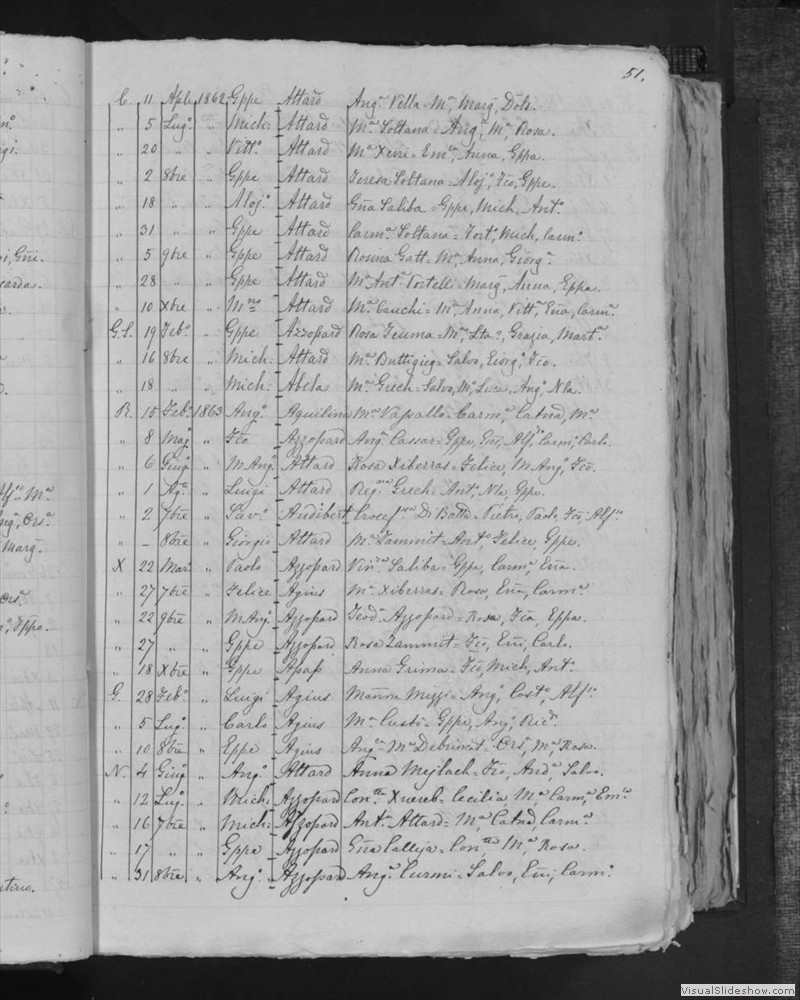 51.
C. 11 Aple 1862 Gppe Attard Angª Vella = Mª, Margª, Dols.
" 5 Lugº " Mich: Attard Mª Soltana = Angª, Mª, Rosa.
" 20 " " Vittº Attard Mª Xuri = Emª, Anna, Gppa.
" 2 8bre " Gppe Attard Teresa Soltana = Alojº, Fcõ, Gppe.
" 18 " " Alojº Attard Gña Saliba = Gppe, Mich, Antº
" 31 " " Gppe Attard Carmª Soltana = Fortº, Mich, Carmº
" 5 9bre " Gppe Attard Rosina Gatt = Mª Anna, Giorgª
" 28 " " Gppe Attard Mª Antª Portelli = Margª, Anna, Gppa.
" 10 Xbre " Mnoº Attard Mª Cauchi = Mª, Anna, Vittª, Eña, Carmª
G.S. 19 Febº " Gppe Azzopard Rosa Teuma = Mª, Grazia, Martª
" 16 8bre " Mich: Attard Mª Buttigieg = Salvo, Giorgº, Fcõ.
" 18 " " Mich: Abela Mª Grech = Salvo, Mª, Luca, Angº, Nla.
R. 15 Febº 1863 Angº Aquilina Mª Vassallo = Carmª, Catna, Mª
" 8 Magº " Fcõ Azzopard Angª Cassar = Gppe, Gni, Alfº, Carmº, Carlo.
" 6 Giugº " M.Angº Attard Rosa Xiberras = Felice, M.Angº, Fcõ.
" 1 Agº " Luigi Attard Regna Grech = Antº, Nla, Gppe.
" 2 7bre " Savº Audibert Crocefna Di Batta = Pietro, Paolo, Fcõ, Alfº
" – 8bre " Giorgio Attard Mª Zammit = Antº, Felice, Gppe.
X 22 Mar. " Paolo Azzopard Vinza Saliba = Gppa, Carmª, Eña.
" 27 7bre " Felice Agius Mª Xiberras = Rosa, Eña, Carmª
" 22 9bre " M.Angº Azzopard Teodª Azzopard = Rosa, Fcã, Gppa.
" 27 " " Gppe Azzopard Rosa Zammit = Fcõ, Eñi, Carlo.
" 18 Xbre " Gppe Apap Anna Grima = Fcõ, Mich, Antº
G. 28 Febº " Luigi Agius Marina Mizzi = Angº, Costº, Alfº
" 5 Lugº " Carlo Agius Mª Custi = Gppe, Angº, Ricº
" 10 8bre " Gppe Agius Angª Mª Debrincat = Orsª, Mª, Rosa.
N. 4 Giugº " Angº Attard Anna Mejlach = Fcõ, Andª, Salvo.
" 12 Lugº " Mich: Azzopard Contta Xuereb = Cecilia, Mª, Carmª, Emª
" 16 7bre " Mich: Azzopard Antª Attard = Mª, Catna, Carmª
" 17 " " Gppe Azzopard Gña Calleja = Contta, Mª, Rosa.
" 31 8bre " Angº Azzopard Angª Curmi = Salvo, Eñi, Carmº
VisualSlideshow.com